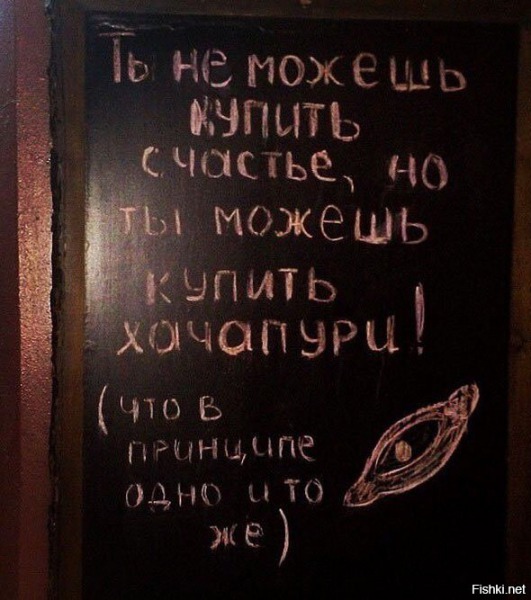 Ты не можешь
купить
счастье, но
ты можешь
купить
хачапури!
(что в
принципе
одно и то
же)
Fishki.net